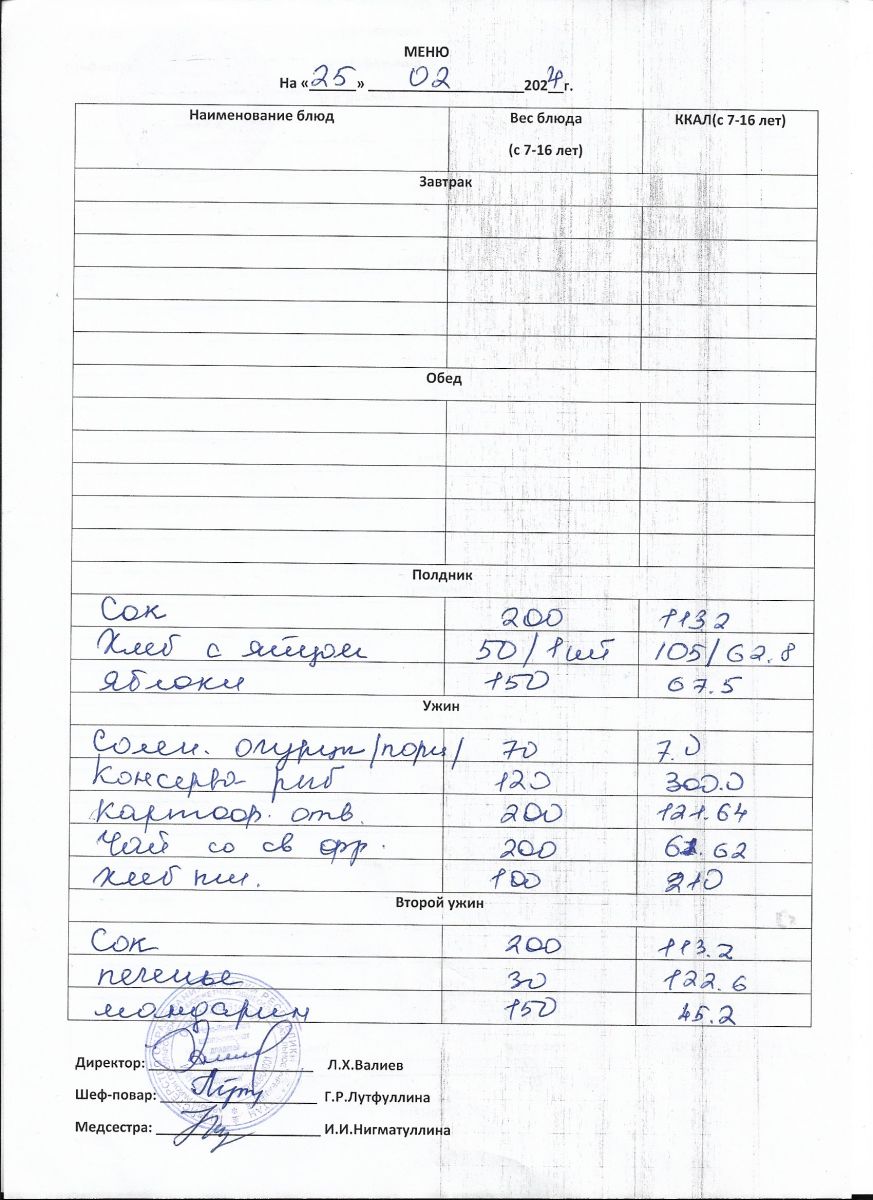 МЕНЮ
На «25» 02 2024 г.
Наименование блюд Вес блюда (с 7-16 лет) ККАЛ(с 7-16 лет)
Завтрак
Обед
Полдник
Сок 200 113.2
Хлеб с яйцом 50/1шт 105/62.8
яблоки 150 67.5
Ужин
Солен. огурцы/порц/ 70 7.0
Консерва рыб 120 300.0
Картоф. отв. 200 121.64
Чай со св фр. 200 61.62
Хлеб пш. 100 210
Второй ужин
Сок 200 113.2
печенье 30 122.6
мандарин 150 45.2
Директор: Л.Х.Валиев
Шеф-повар: Г.Р.Лутфуллина
Медсестра: И.И.Нигматуллина